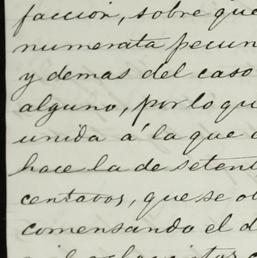 facción, sobre que
numerata pecun
y demas del caso
alguno, por lo qu
unida á la que
hace la de setent
centavos, que se o
comensando el d